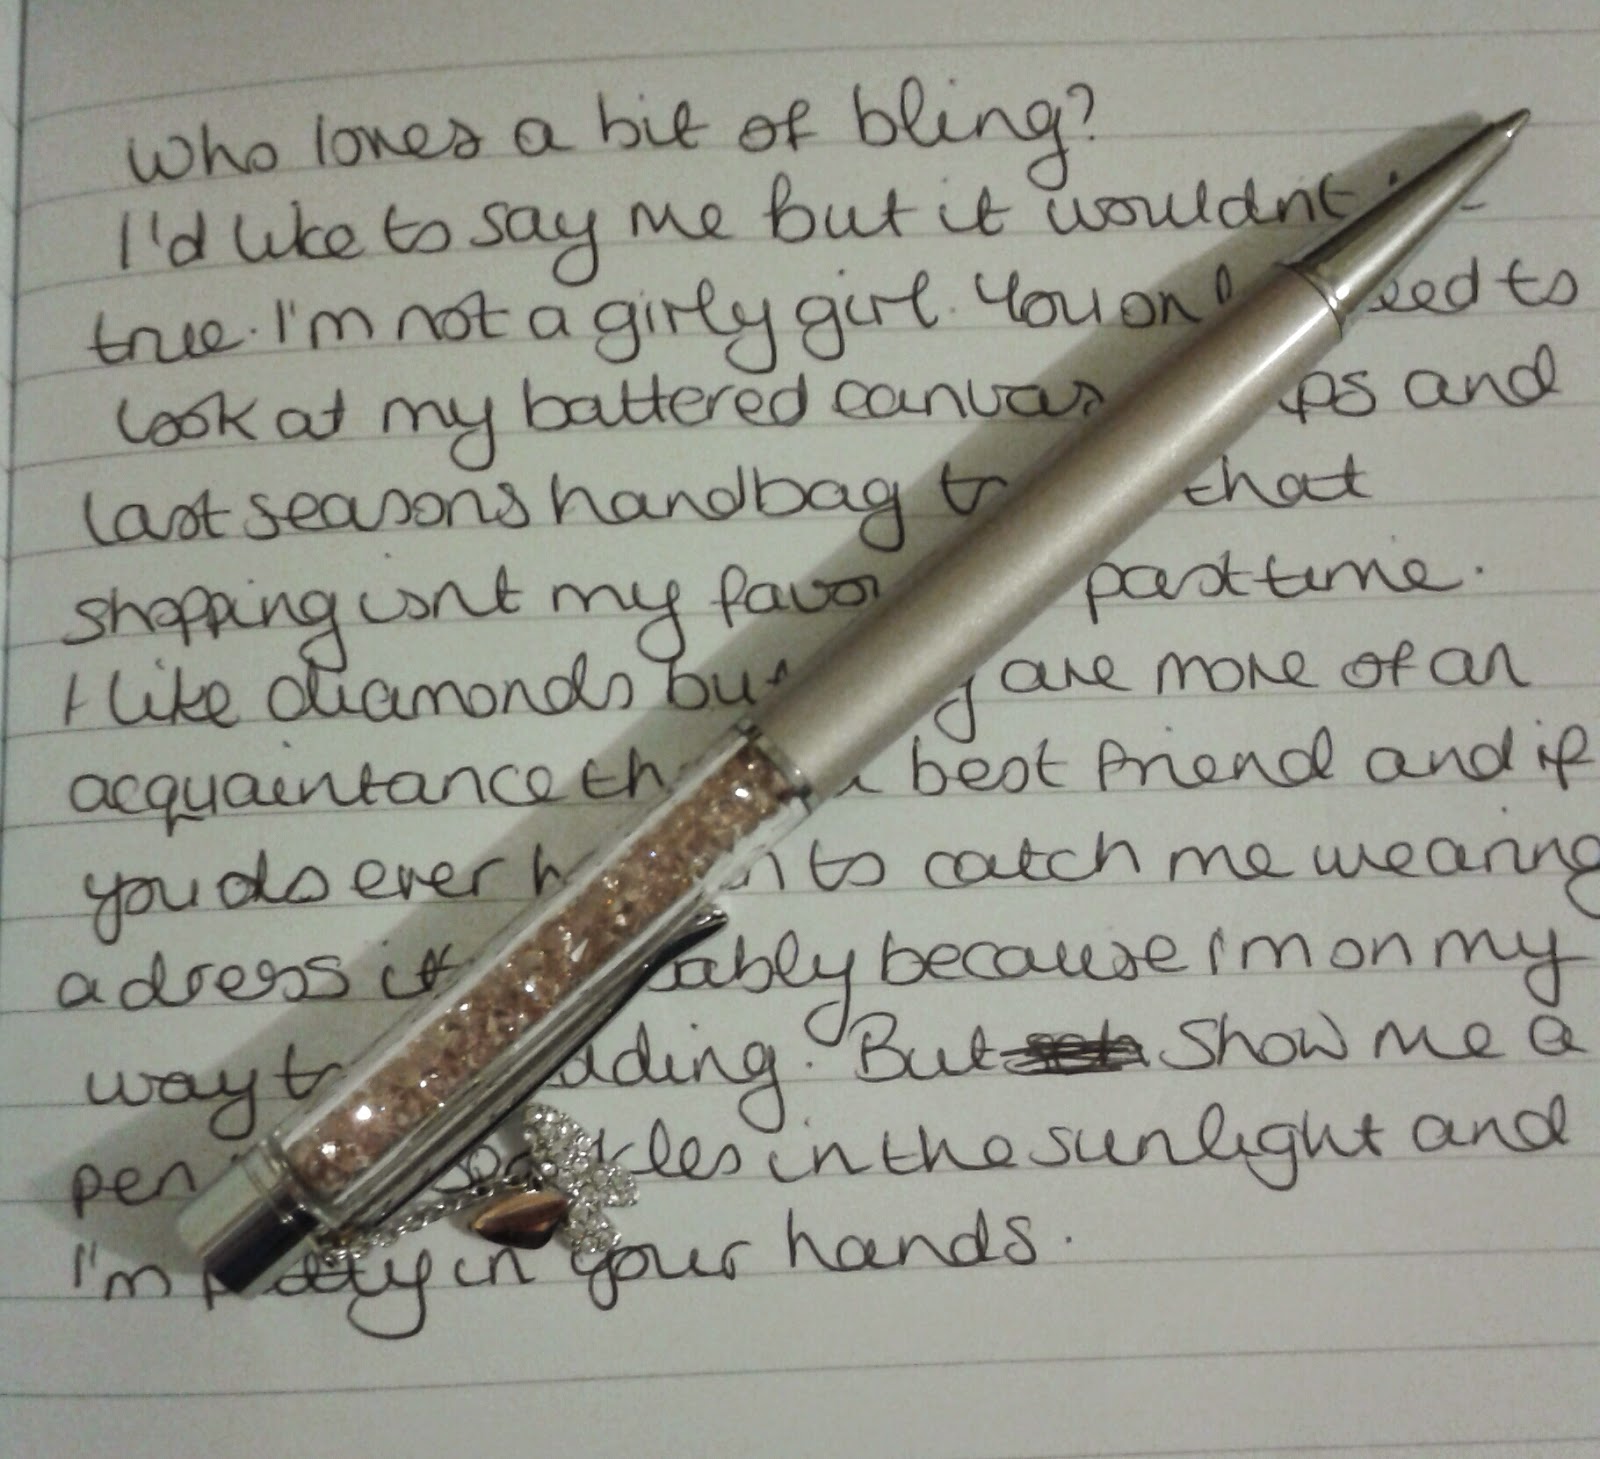 Who loves a bit of bling?
I'd like to say me but it wouldnt
true. I'm not a girly girl. You need to
look at my battered canvas and
last seasons handbag that
shopping isnt my pasttime.
I like diamonds but are more of an
acquaintance best friend and if
you do ever to catch me wearing
a dress because I'm on my
way But show me a
pen in the sunlight and
I'm in your hands.